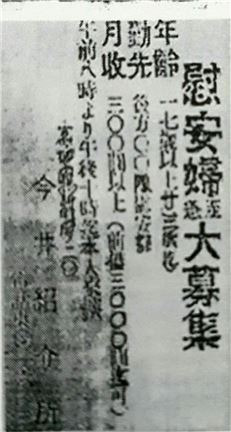 慰安婦至急大募集
年齢 一七歳以上廿三歳迄
勤先 後方〇〇隊慰安部
月収 三〇〇円以上(前借三〇〇〇円迄可)
午前八時より午後十時迄本人来談
今井紹介所